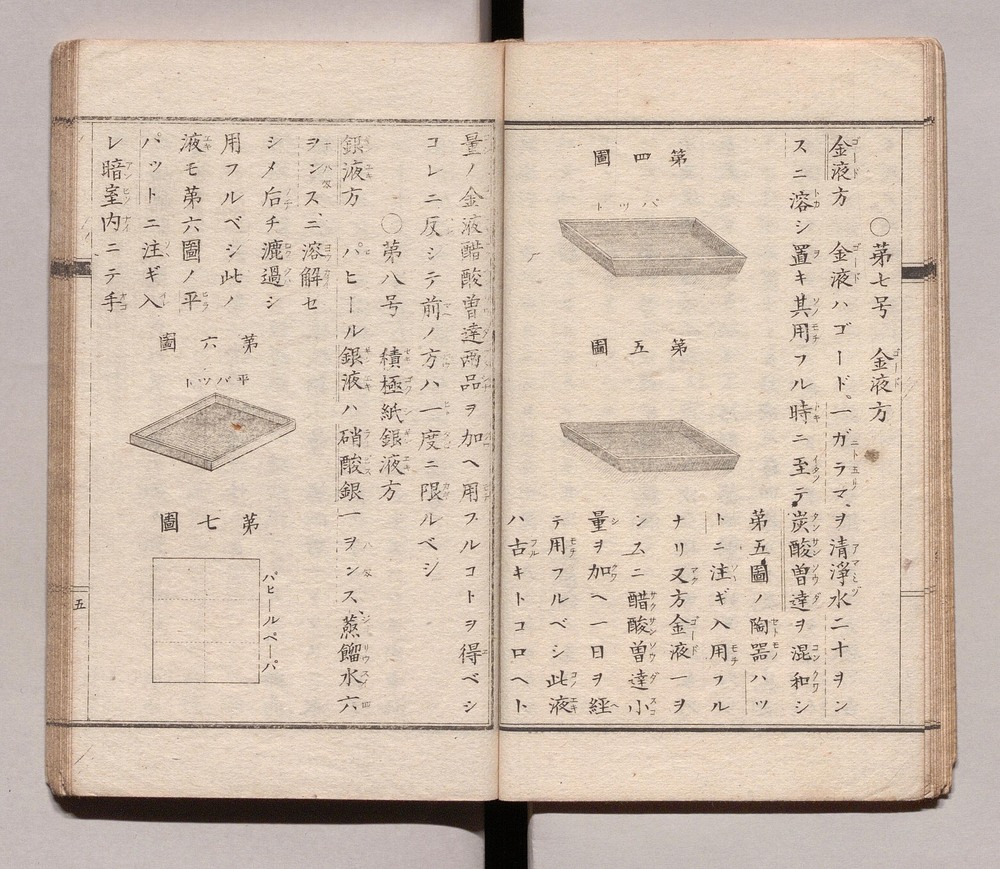 ○第七号　金液方
金液方　金液ハゴード、一ガラマ、ヲ清淨水二十ヲン
スニ溶シ置キ其用フル時ニ至テ炭酸曽達ヲ混和シ
第四圖
バット
第五圖
第五圖ノ陶器ハッ
トニ注ギ入用フル
ナリ又方金液一ヲ
ンスニ醋酸曽達小
量ヲ加ヘ一日ヲ經
テ用フルベシ此液
ハ古キトコロヘト
量ノ金液醋酸曽達両品ヲ加ヘ用フルコトヲ得ベシ
コレニ反シテ前ノ方ハ一度ニ限ルベシ
○第八号　積極紙銀液方
銀液方　パヒール銀液ハ硝酸銀一ヲンス、蒸餾水六
ヲンスニ溶解セ
シメ后チ漉過シ
用フルベシ此ノ
液モ第六圖ノ平
パットニ注ギ入
レ暗室内ニテ手
第六圖
平バット
第七圖
パヒールペーパ
五